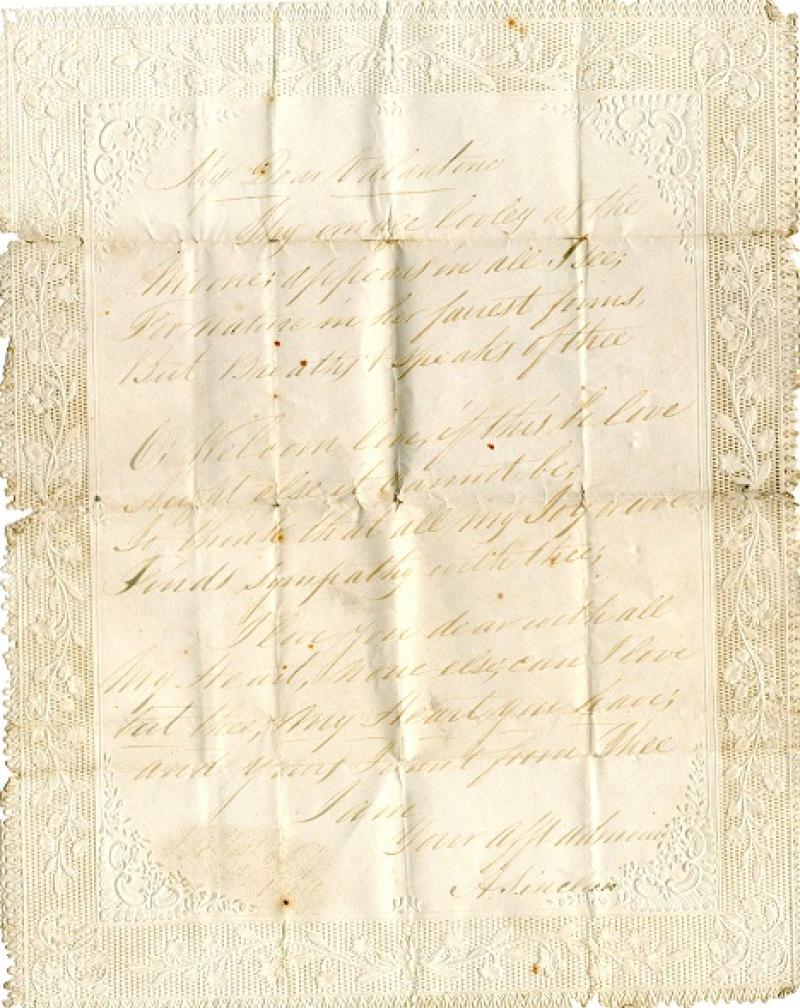 My Dear Valantine
Thy image lovley as the
Morne; appears in all I see;
For nature in her fairest forms,
But Breaths & speaks of thee
O; Welcom love, if this be love
Aught else it cannot be;
To think that all my Joy
Finds sympathy with thee;
I love you dear with all
My Heart, None else; can I love
but thee; My Heart, you have;
and yours I want from Thee
I am
Your afft admirer
A. Sinclair